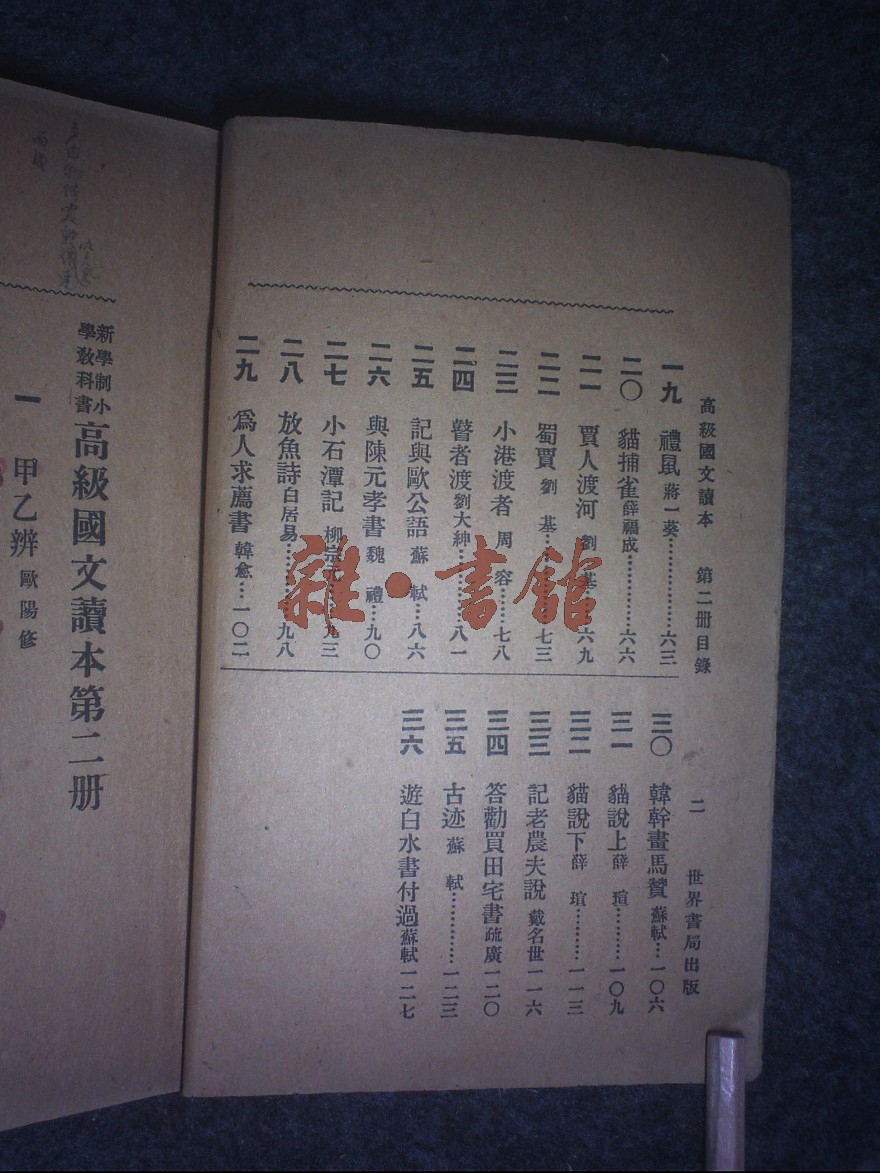 高級國文讀本 第二册目錄 二 世界書局出版
一九 禮鼠 蔣一葵………………六三
二〇 貓捕雀 薛福成……………六六
二一 賈人渡河 劉基六九
二二 蜀賈 劉基…七三
二三 小港渡者 周容…七八
二四 瞽者渡 劉大紳…………八一
二五 記與歐公語 蘇軾…八六
二六 與陳元孝書 魏禮…九〇
二七 小石潭記 柳宗元…九三
二八 放魚詩 白居易…………九八
二九 爲人求薦書 韓愈…一〇二
三〇 韓幹畫馬贊 蘇軾…一〇六
三一 貓說上 薛瑄…………一〇九
三二 貓說下 薛瑄…………一一三
三三 記老農夫說 戴名世一一六
三四 答勸買田宅書 疏廣一二〇
三五 古迹 蘇軾……………一二三
三六 遊白水書付過 蘇軾一二七
雜·書館
新學制小學教科書 高級國文讀本第二册
一 甲乙辨 歐陽修